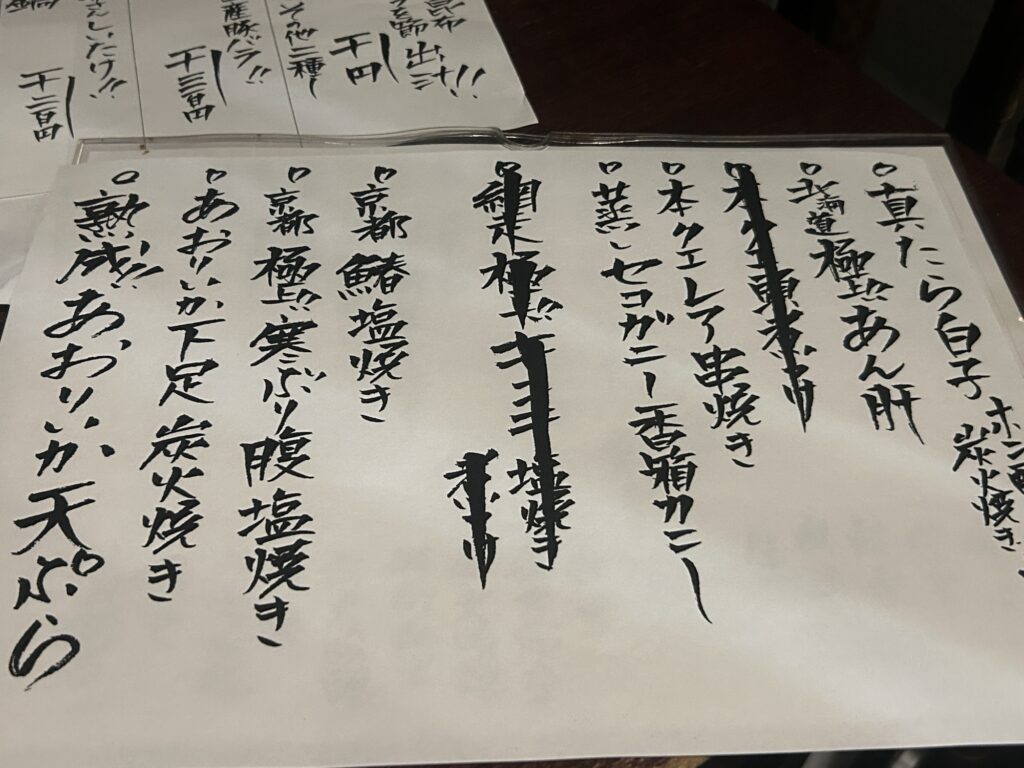 真たら白子 ポン酢
炭火焼き
北海道極上!!あん肝
本クエ頭煮つけ
本クエレア串焼き
蒸しセコガニ(香箱カニ)
網走極上!!キンキ塩焼き
煮つけ
京都 鰆塩焼き
京都 極上!!寒ぶり腹塩焼き
あおりいか下足 炭火焼き
熟成!!あおりいか天ぷら
出汁!!
千円
その他二種
産豚バラ!!
千三百円
しいたけ!!
千二百円